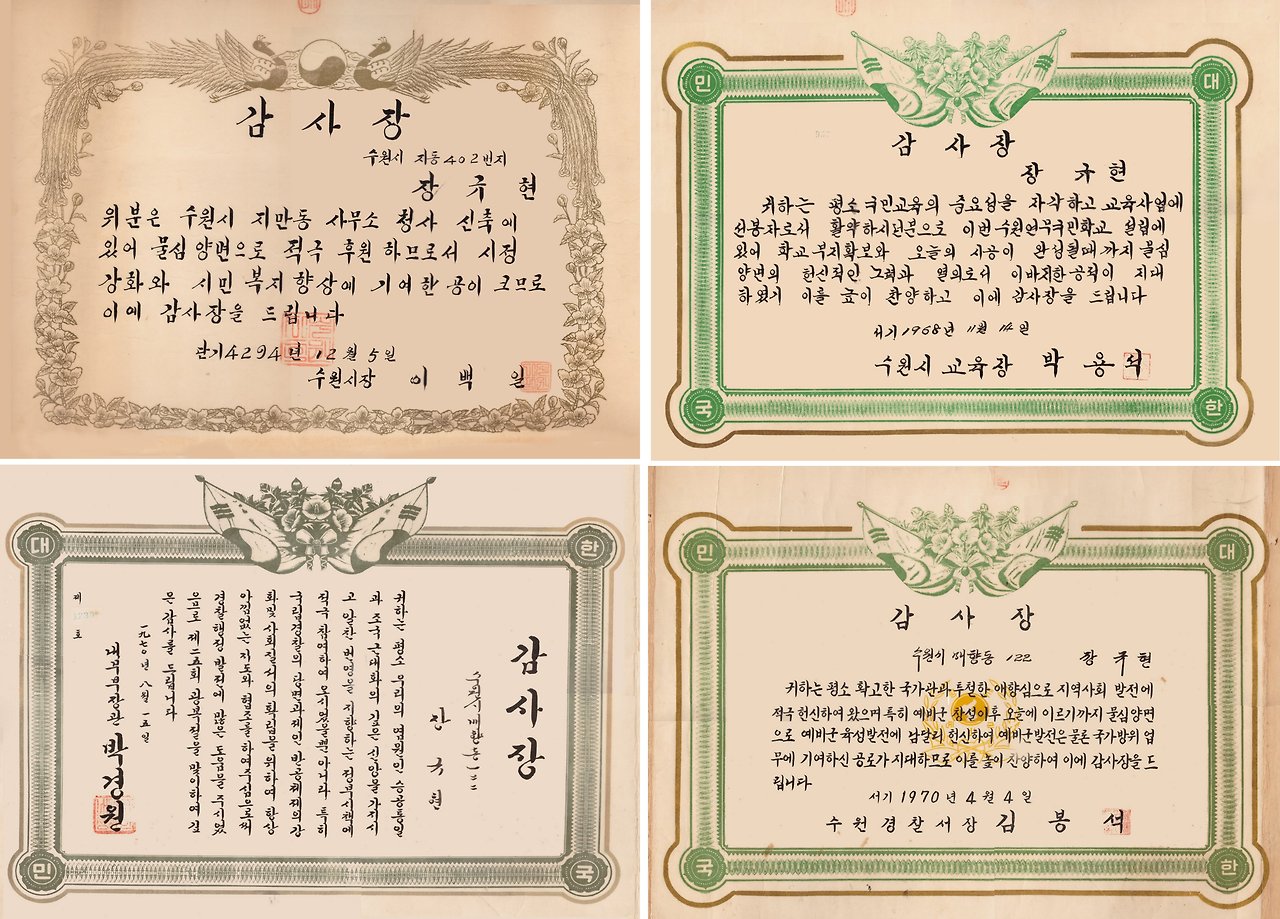 감사장
수원시 지동 402번지
장규현
위분은 수원시 지만동 사무소 청사 신축에
있어 물심 양면으로 적극 후원 하므로서 시정
강화와 시민 복지 향상에 기여한 공이 크므로
이에 감사장을 드립니다
단기 4294년 12월 5일
수원시장 이백일
민 대
감사장
장규현
귀하는 평소 국민교육의 중요성을 자각하고 교육사업에
선봉자로서 활약하시던분으로 이번 수원연무국민학교 설립에
있어 학교부지확보와 오늘의 시공이 완성될때까지 물심
양면의 헌신적인 그력과 열의로서 이바지한 공적이 지대
하였기 이를 높이 찬양하고 이에 감사장을 드립니다
서기 1968년 11월 14일
수원시 교육장 박용석
국 한
대 한
감사장
장규현
귀하는 평소 우리의 염원인 승공통일
과 조국 근대화의 깊은 신념을 가지시
고 알찬 번영을 지향하는 정부시책에
적극 참여하여 오시였을뿐 아니라 특히
국립경찰의 당면과제인 반공체제의 강
화및 사회질서의 확립을 위하여 항상
아낌없는 지도와 협조를 하여주심으로써
경찰행정 발전에 많은 도움을 주시었
으므로 제二五회 광복절을 맞이하여 깊
은 감사를 드립니다
一九七0년 八월 一五일
내무부장관 박경원
제 호
민 국
민 대
감사장
수원시 매향동 122 장규현
귀하는 평소 확고한 국가관과 투철한 애향심으로 지역사회 발전에
적극 헌신하여 왔으며 특히 예비군 창설이후 오늘에 이르기까지 물심양면
으로 예비군 육성발전에 남달리 헌신하여 예비군발전은 물론 국가방위 업
무에 기여하신 공로가 지대하므로 이를 높이 찬양하여 이에 감사장을 드
립니다
서기 1970년 4월 4일
수원경찰서장 김봉석
국 한